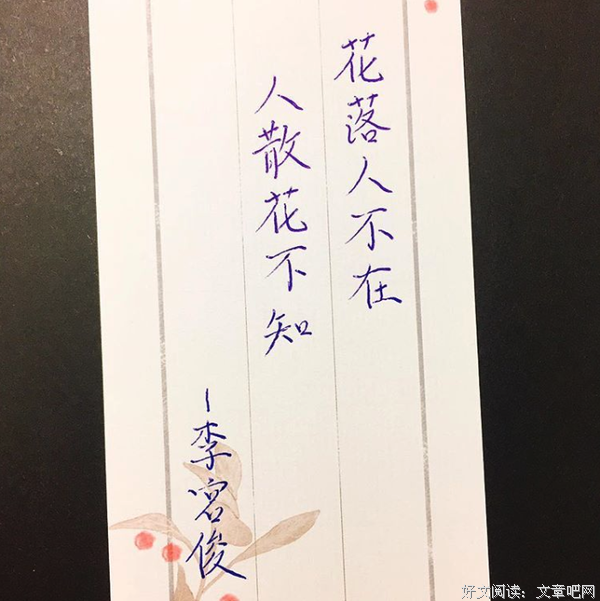 花落人不在
人散花不知
-李宕俊
好文阅读：文章吧网